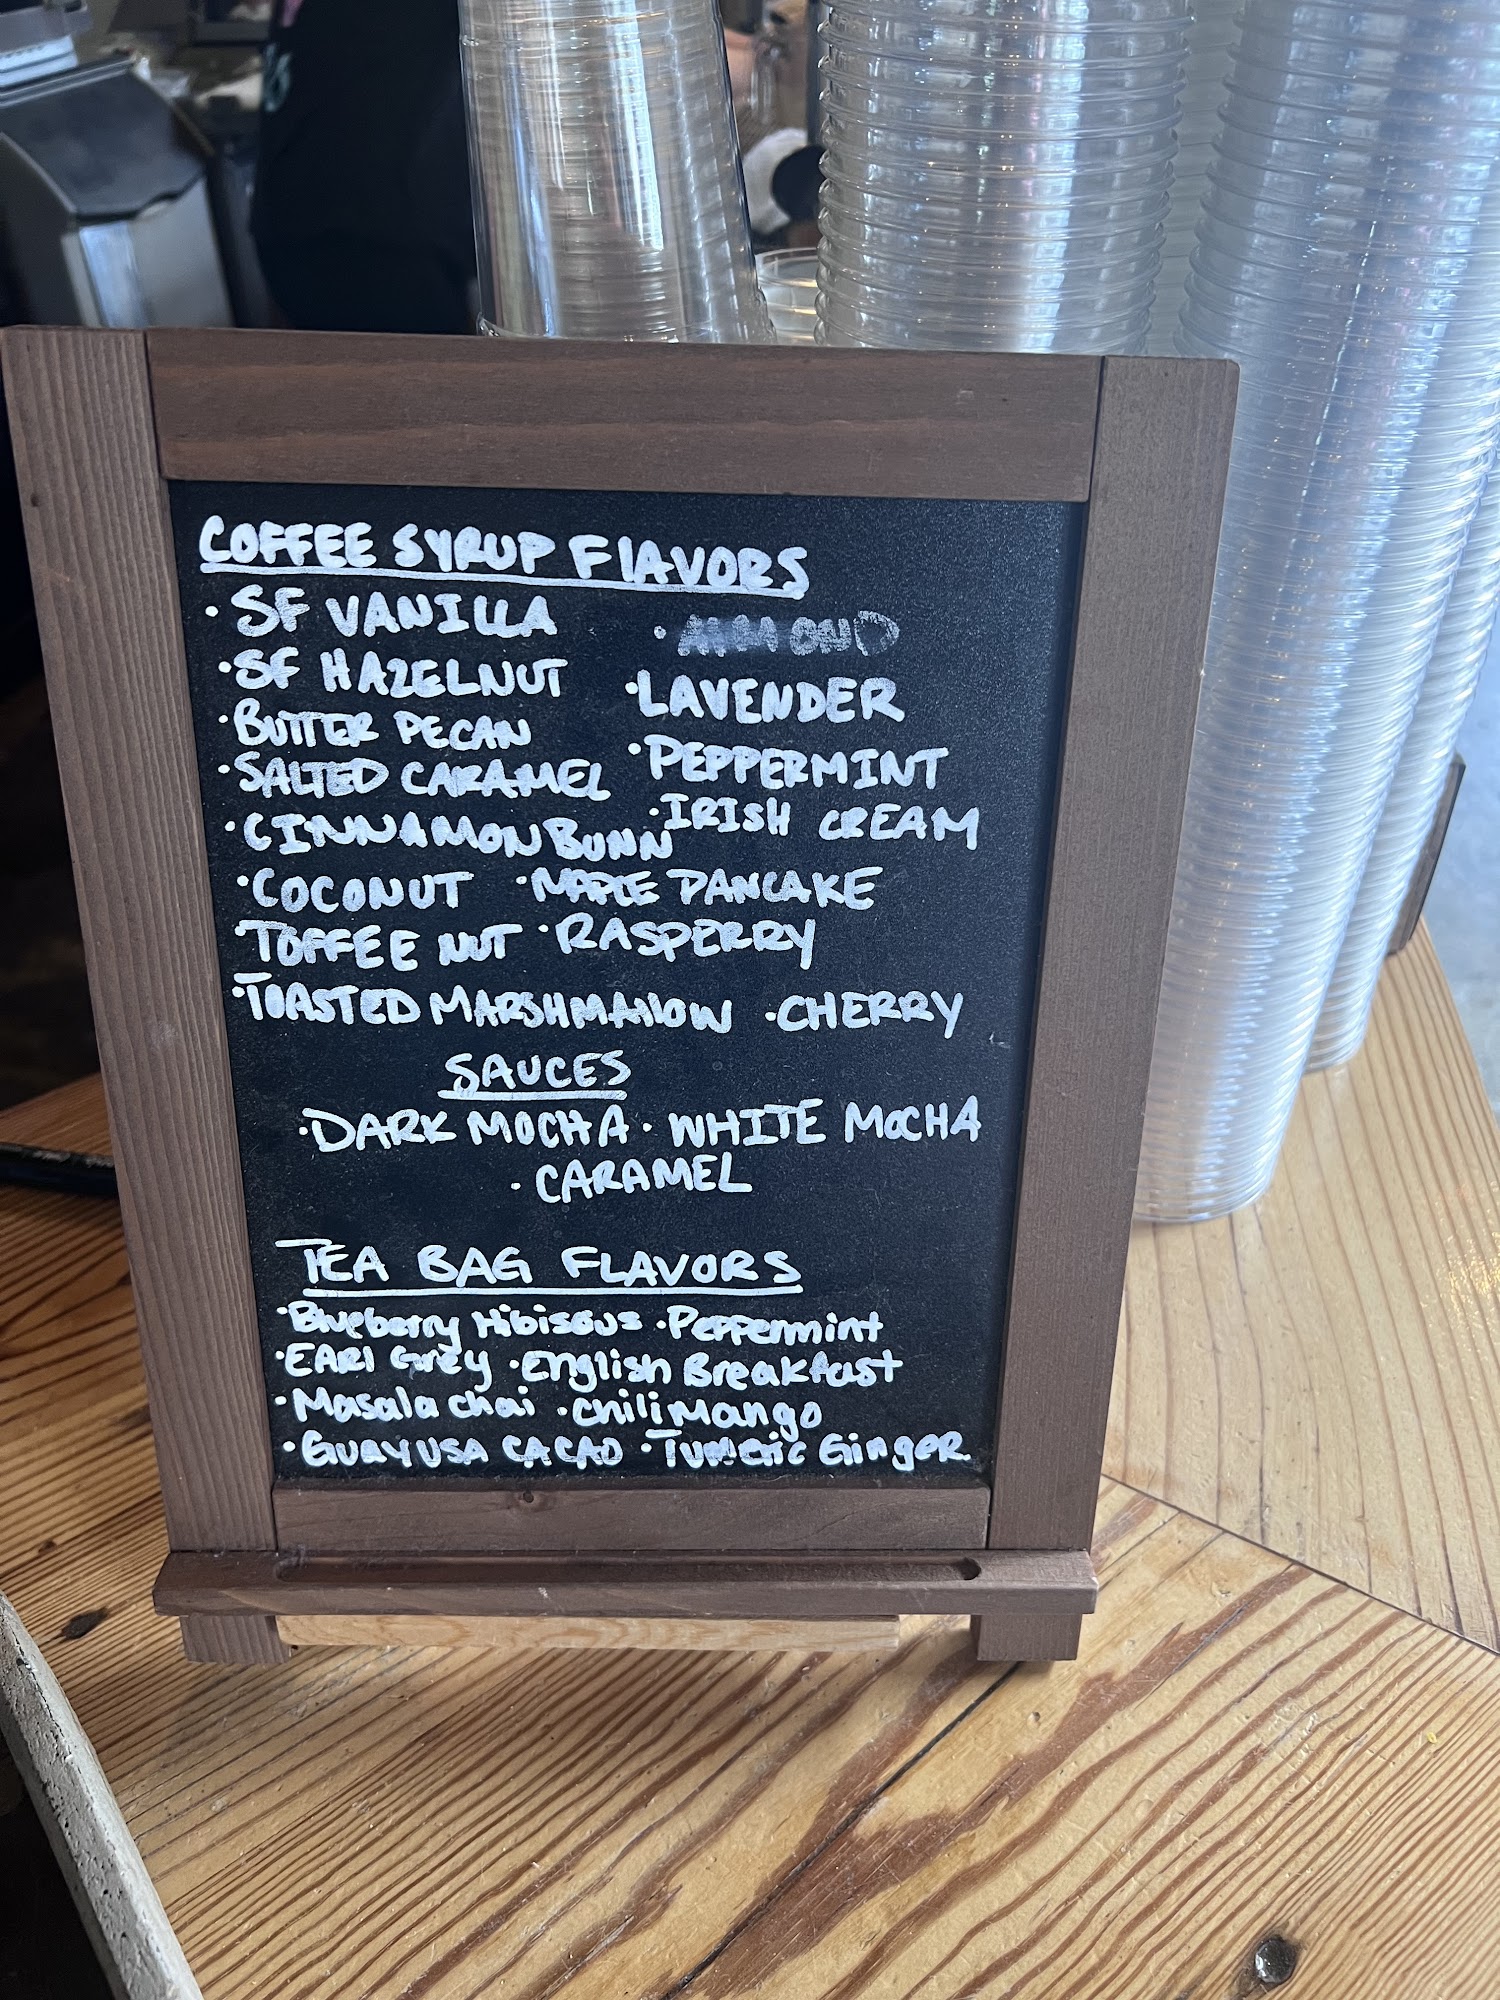 COFFEE SYRUP FLAVORS
• SF VANILLA • ALMOND
• SF HAZELNUT • LAVENDER
• BUTTER PECAN • PEPPERMINT
• SALTED CARAMEL • IRISH CREAM
• CINNAMON BUNN
• COCONUT • MAPLE PANCAKE
TOFFEE NUT • RASPBERRY
• TOASTED MARSHMALLOW • CHERRY
SAUCES
• DARK MOCHA • WHITE MOCHA
• CARAMEL
TEA BAG FLAVORS
• Blueberry Hibiscus • Peppermint
• EARl Grey • English Breakfast
• Masala chai • Chili Mango
• GUAYUSA CACAO • Tumeric Ginger